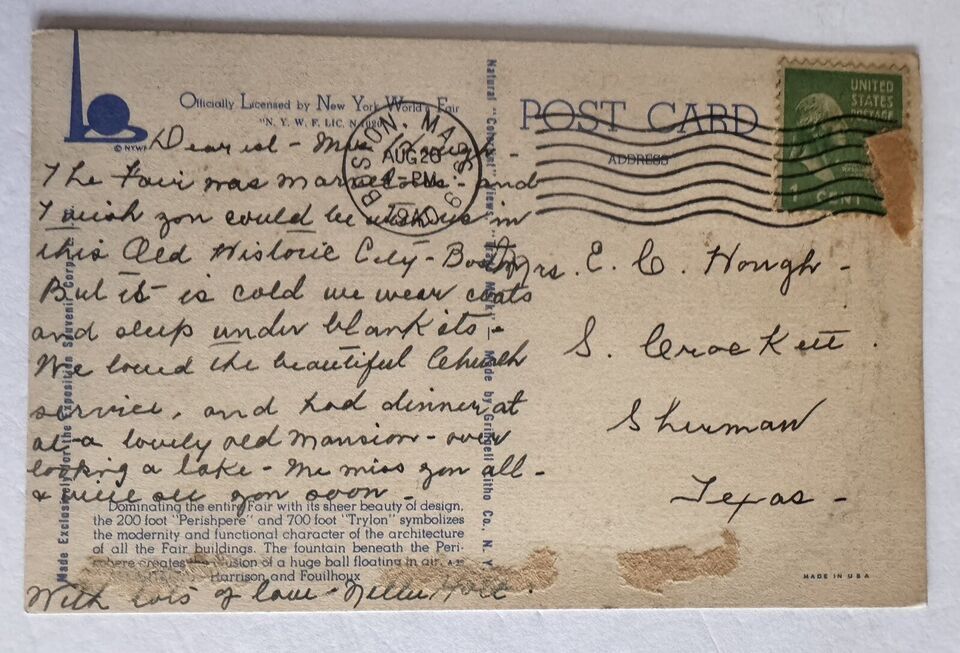 Officially Licensed by New York World's Fair
"N. Y. W. F. LIC. N
© NYWF
Dearest - Mrs Hough -
The Fair was marvelous - and
I wish you could be with us in
this Old Historic City - Boston
But it is cold we wear coats
and sleep under blankets -
We loved the beautiful Church
service, and had dinner at
at a lovely old mansion - over
looking a lake - We miss you all -
& will see you soon -
Dominating the entire Fair with its sheer beauty of design,
the 200 foot "Perishpere" and 700 foot "Trylon" symbolizes
the modernity and functional character of the architecture
of all the Fair buildings. The fountain beneath the Peri-
sphere creates illusion of a huge ball floating in air.
Harrison and Fouilhoux
With lots of love - Nelle
Made Exclusively for the Exposition Souvenir Corp
Natural "Colorset" Views, "Trade Mark" — Made by Grinnell Litho Co., N. Y.
BOSTON, MASS
AUG 26
PM
1940
POST CARD
ADDRESS
UNITED
STATES
POSTAGE
1 CENT
Mrs. E. C. Hough -
S. Crockett.
Sherman
Texas -
MADE IN USA